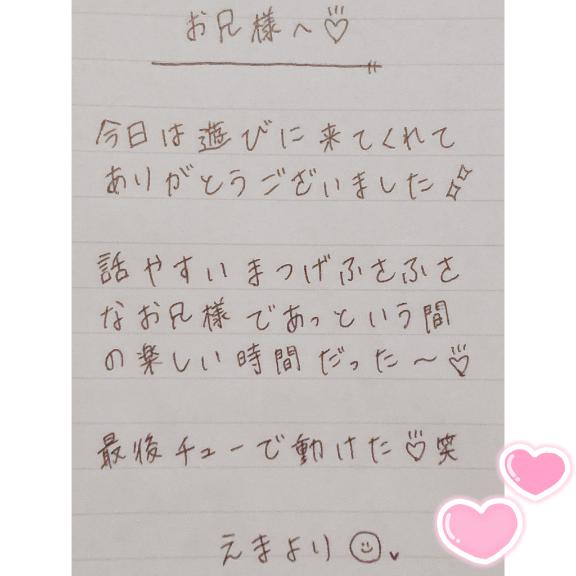 お兄様へ♡
今日は遊びに来てくれて
ありがとうございました
話やすいまつげふさふさ
なお兄様であっという間
の楽しい時間だった〜♡
最後チューで動けた♡笑
えまより